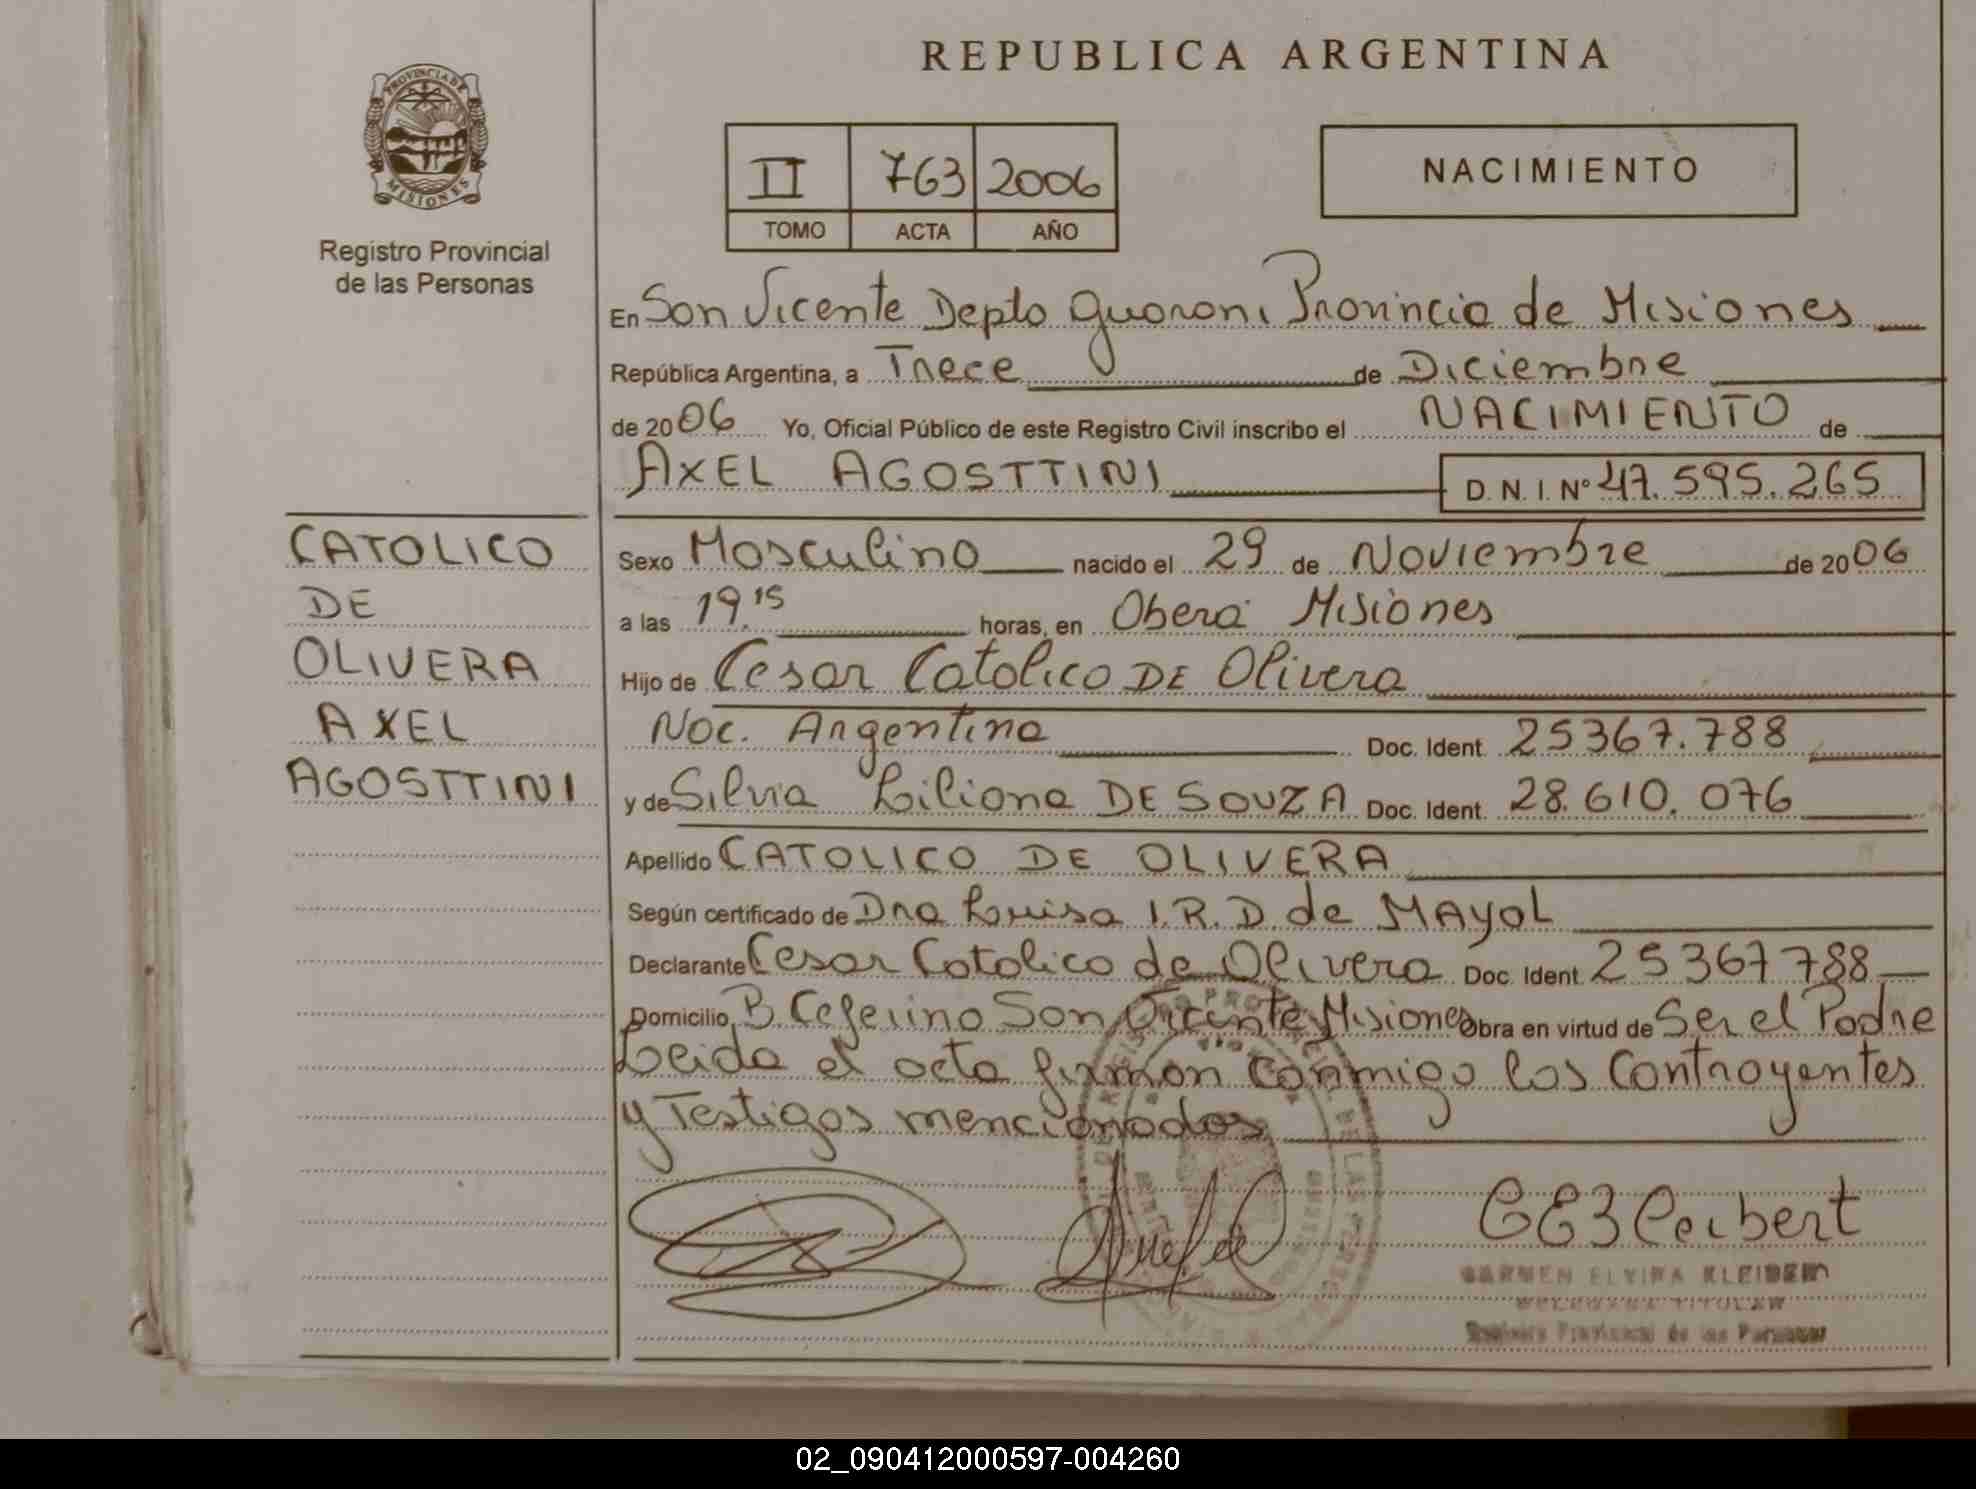 REPUBLICA ARGENTINA
PROVINCIA DE
MISIONES
Registro Provincial
de las Personas
II 763 2006
TOMO ACTA AÑO
NACIMIENTO
En San Vicente Depto Guarani Provincia de Misiones
República Argentina, a Trece de Diciembre
de 2006 Yo, Oficial Público de este Registro Civil inscribo el NACIMIENTO de
AXEL AGOSTTINI D.N.I. Nº 47.595.265
CATOLICO
DE
OLIVERA
AXEL
AGOSTTINI
Sexo Masculino nacido el 29 de Noviembre de 2006
a las 19.15 horas, en Obera Misiones
Hijo de Cesar Catolico DE Olivera
Nac. Argentina Doc. Ident. 25367.788
y de Silvia Liliana DE SOUZA Doc. Ident. 28.610.076
Apellido CATOLICO DE OLIVERA
Según certificado de Dra Luisa I.R.D. de MAYOL
Declarante Cesar Catolico de Olivera Doc. Ident. 25367788
Domicilio B. Ceferino San Vicente Misiones Obra en virtud de Ser el Padre
Leida el acta firman conmigo los Contrayentes
y Testigos mencionados
CARMEN ELVIRA
Registro Provincial de las Personas
02_090412000597-004260